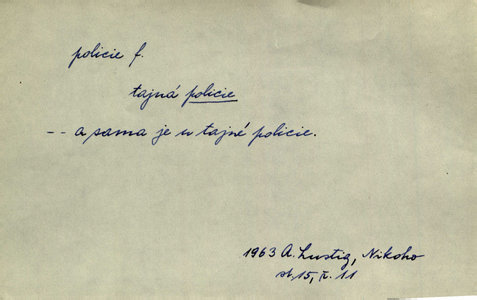 policie f.
tajná policie
-- a sama je u tajné policie.
1963 A. Lustig, Nikoho
st. 15, ř. 11